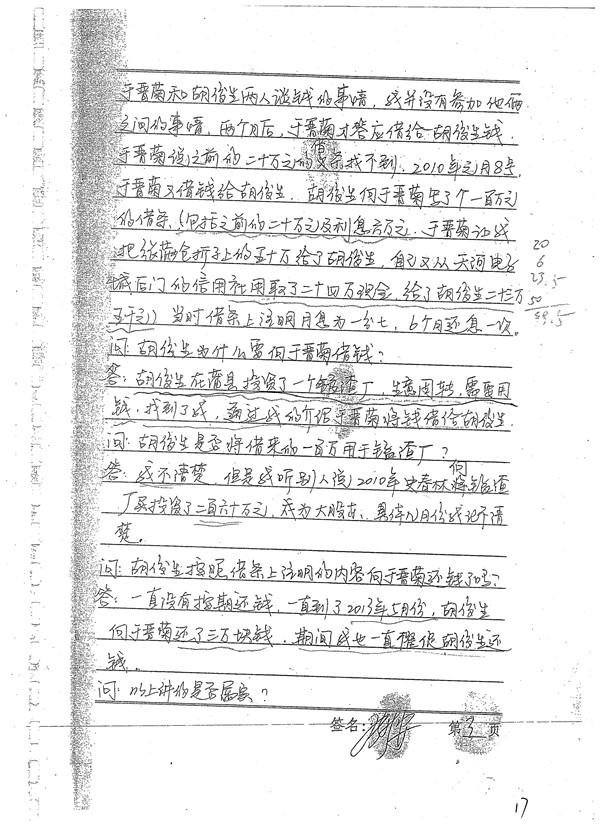 于晋菊和胡俊生两人谈钱的事情,我并没有参加他俩
之间的事情,两个月后,于晋菊才答应借给胡俊生钱,
于晋菊说之前的二十万元的借条找不到,2010年元月8号,
于晋菊又借钱给胡俊生,胡俊生向于晋菊出了个一百万元
的借条,(包括之前的二十万元及利息六万元,于晋菊让我
把张满仓折子上的五十万给了胡俊生,自己又从天河电
城后门的信用社用取了二十四万现金,给了胡俊生二十三万
五千元)当时借条上注明月息为一分七,6个月还息一次。
问:胡俊生为什么要向于晋菊借钱?
答:胡俊生在蒲县投资了一个锰渣厂,生意周转,需要用
钱,找到了我,通过我的介绍于晋菊将钱借给胡俊生
问:胡俊生是否将借来的一百万用于锰渣厂?
答:我不清楚,但是我听别人说,2010年史春林向锰渣
厂又投资了二百六十万元,成为大股东,具体几月份我记不清
楚。
问:胡俊生按照借条上注明的内容向于晋菊还钱了吗?
答:一直没有按期还钱,一直到了2013年5月份,胡俊生
向于晋菊还了三万块钱,期间我也一直催促胡俊生还
钱。
问:以上讲的是否属实?
20
6
23.5
50
99.5
签名:
第3页
17